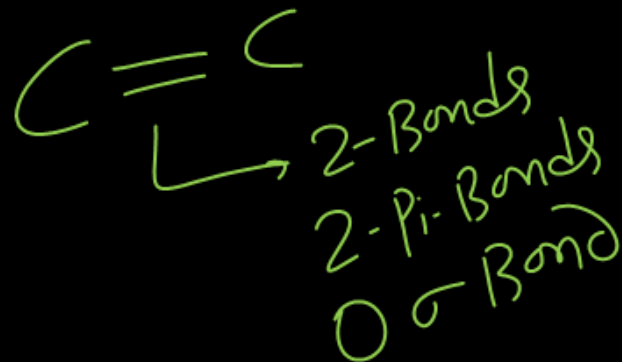 C = C
2-Bonds
2-Pi-Bonds
0 σ Bond